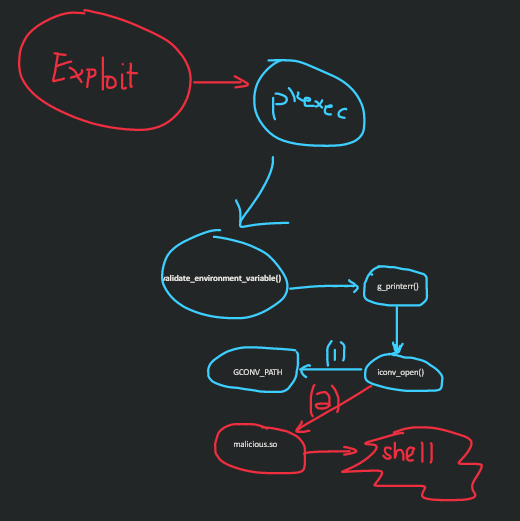 Exploit
pkexec
validate_environment_variable()
g_printerr()
(1)
GCONV_PATH
iconv_open()
(2)
malicious.so
shell